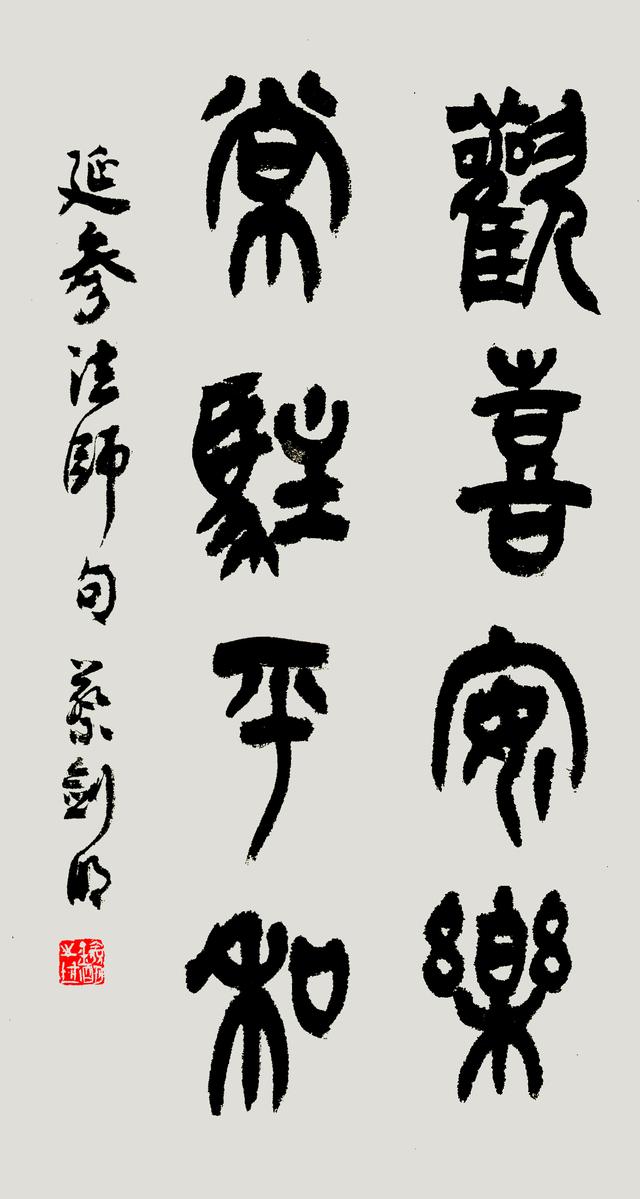 歡喜安樂
常駐平和
延參法師句 蔡劍明